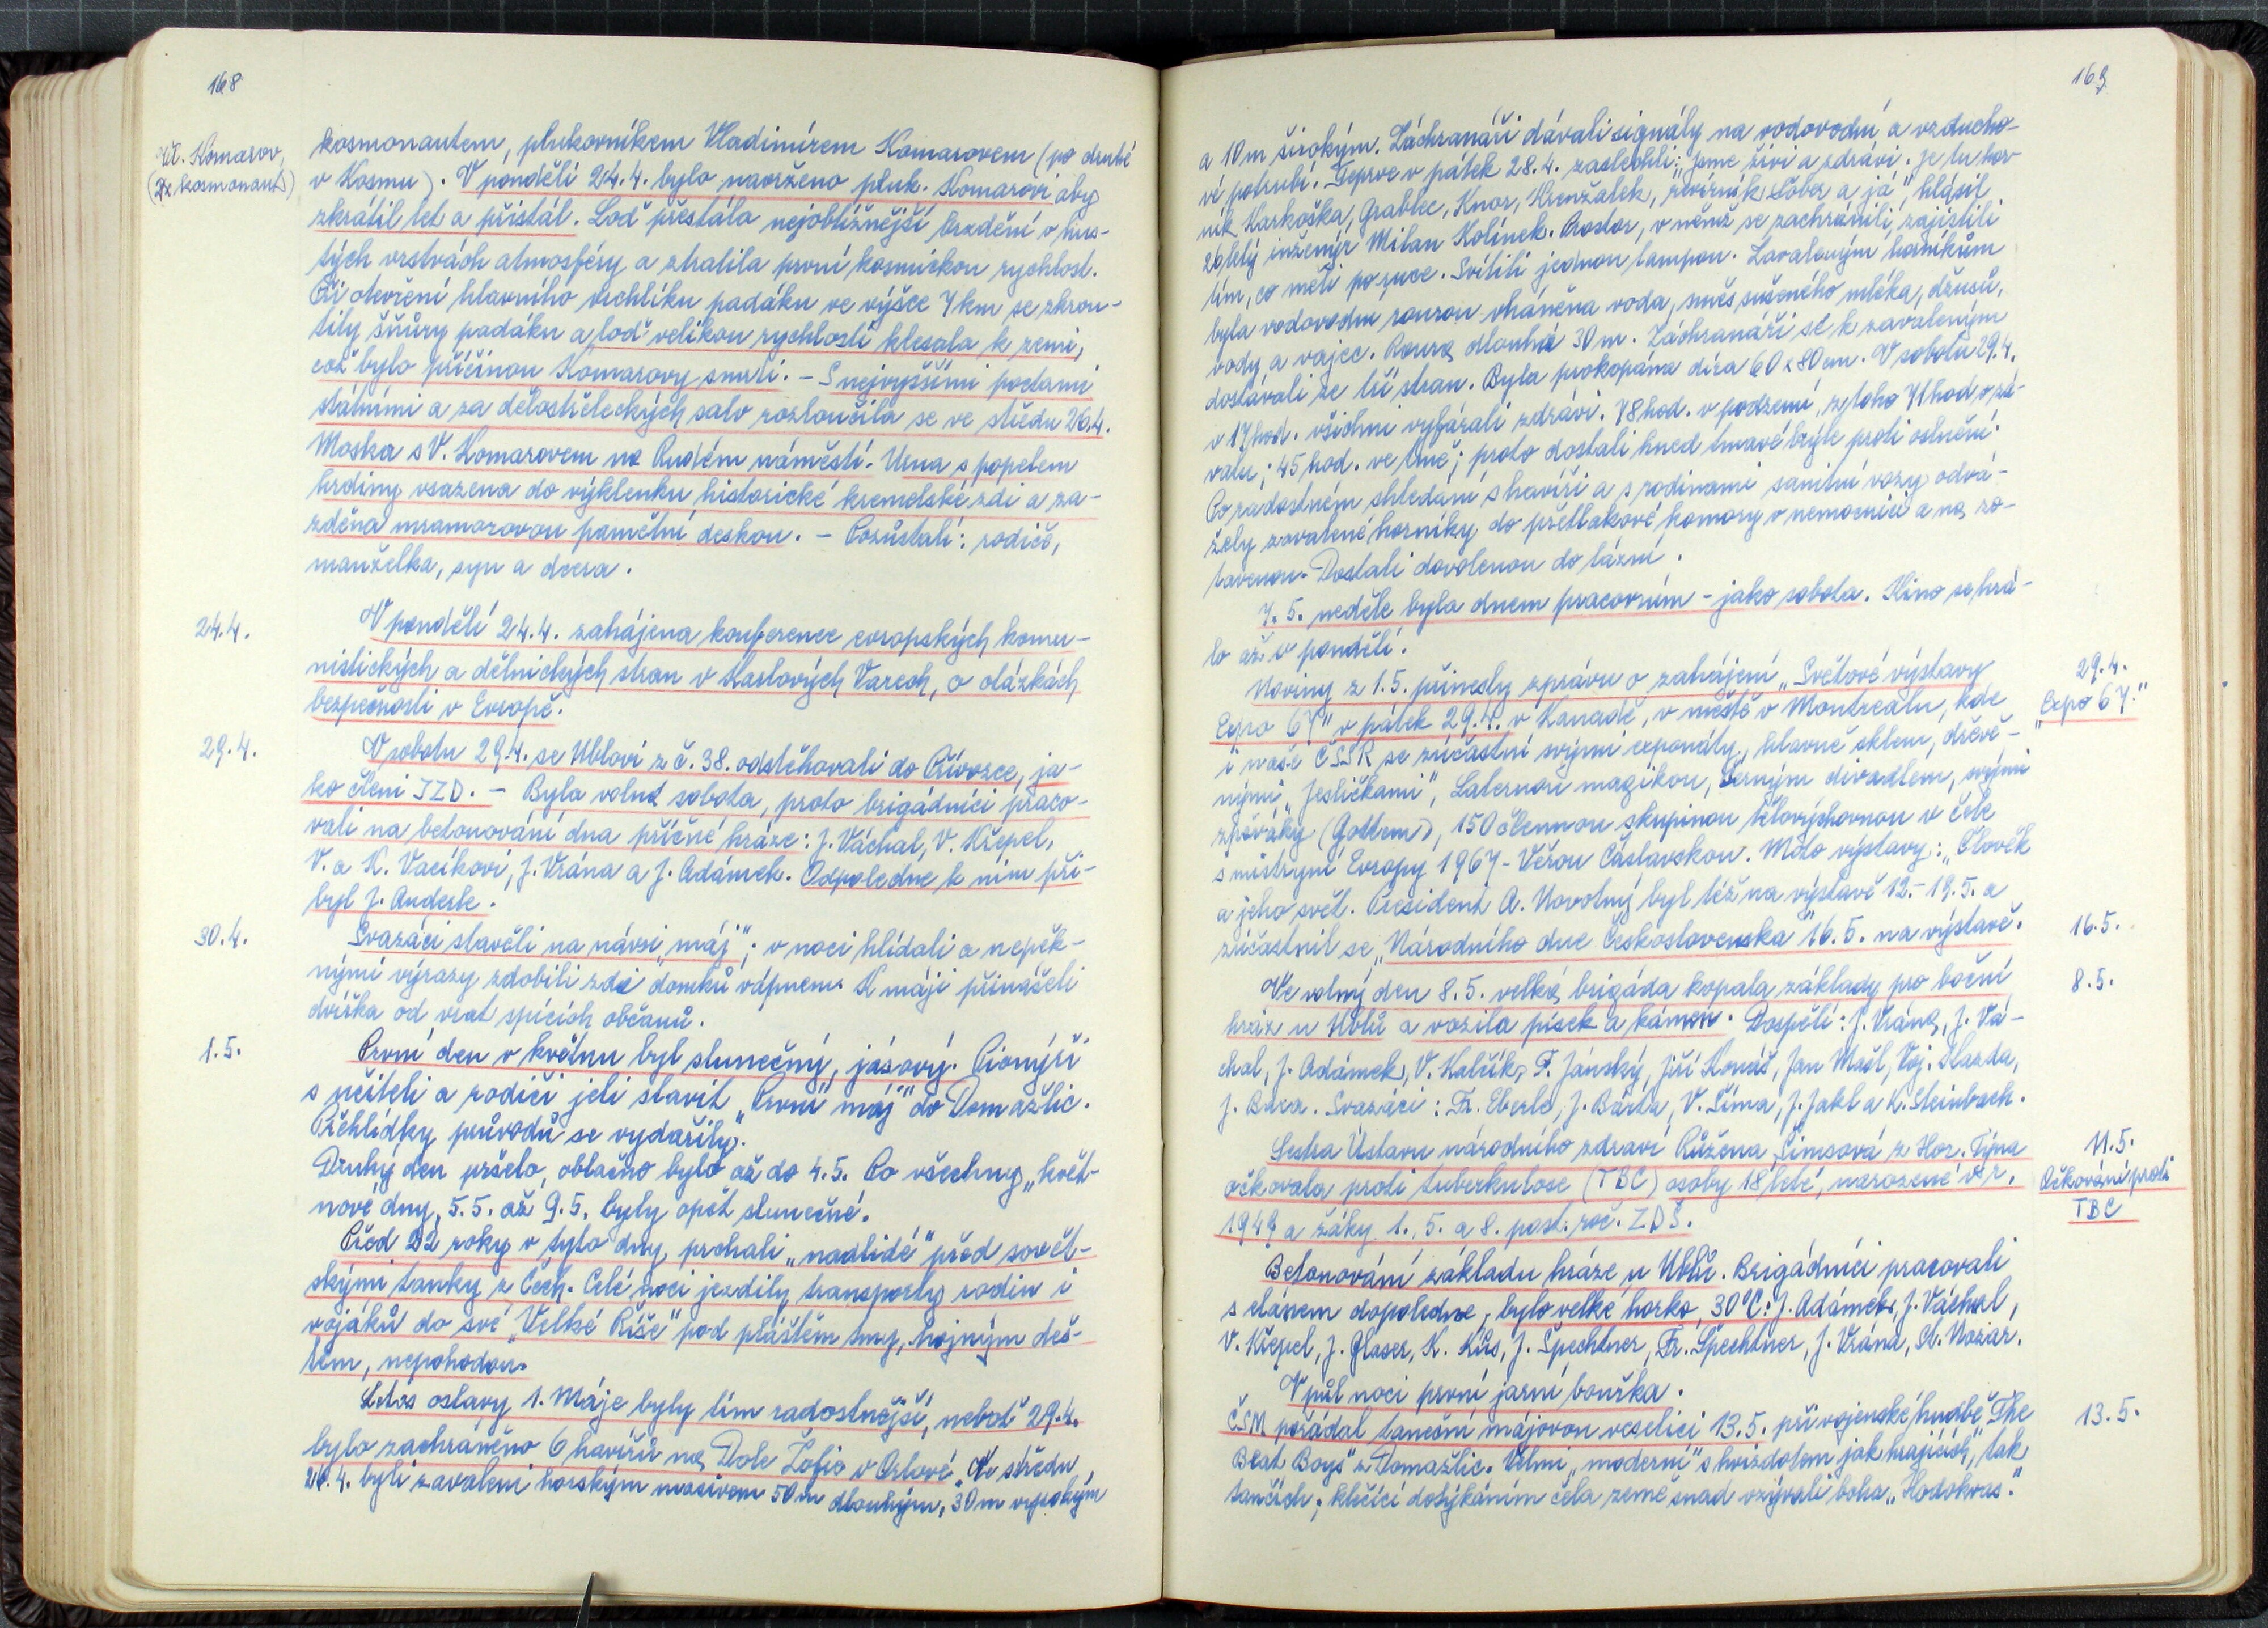 168
Vl. Komarov,
(2x kosmonaut)
kosmonautem, plukovníkem Vladimírem Komarovem (po druhé
v Kosmu). V pondělí 24.4. bylo navrženo pluk. Komarovi aby
zkrátil let a přistál. Loď přestála nejobtížnější brzdění v hus-
tých vrstvách atmosféry a ztratila první kosmickou rychlost.
Při otevření hlavního vrchlíku padáku ve výšce 7 km se zkrou-
tily šňůry padáku a loď velikou rychlostí klesala k zemi,
což bylo příčinou Komarovy smrti. - S nejvyššími poctami
státními a za dělostřeleckých salv rozloučila se ve středu 26.4.
Moskva s V. Komarovem na Rudém náměstí. Urna s popelem
hrdiny vsazena do výklenku historické kremelské zdi a za-
zděna mramorovou pamětní deskou. - Pozůstalí: rodiče,
manželka, syn a dcera.
24.4.
V pondělí 24.4. zahájena konference evropských komu-
nistických a dělnických stran v Karlových Varech, o otázkách
bezpečnosti v Evropě.
29.4.
V sobotu 29.4. se Ublovi z č. 38. odstěhovali do Pívozce, ja-
ko členi JZD. - Byla volná sobota, proto brigádníci praco-
vali na betonování dna příčné hráze: J. Váchal, V. Křepel,
V. a K. Vacíkovi, J. Vrána a J. Adámek. Odpoledne k nim při-
byl J. Anderle.
30.4.
Svazáci stavěli na návsi „máj"; v noci hlídali a nepěk-
nými výrazy zdobili zdi domků vápnem. K máji přinášeli
dvířka od vrat spících občanů.
1.5.
První den v květnu byl slunečný, jásavý. Pionýři
s učiteli a rodiči jeli slavit „První máj" do Domažlic.
Přehlídky průvodů se vydařily.
Druhý den pršelo, oblačno bylo až do 4.5. Po všechny „květ-
nové dny, 5.5. až 9.5. byly opět slunečné.
Před 22 roky v tyto dny prchali „nadlidé" před sovět-
skými tanky z Čech. Celé noci jezdily transporty rodin i
vojáků do své „Velké Říše" pod pláštěm tmy, hojným deš-
těm, nepohodou.
Letos oslavy 1. Máje byly tím radostnější, neboť 29.4.
bylo zachráněno 6 havířů na Dole Žofie v Orlové. Ve středu
26.4. byli zavaleni horským masivem 50 m dlouhým, 30 m vysokým
169
a 10 m širokým. Záchranáři dávali signály na vodovodní a vzducho-
vé potrubí. Teprve v pátek 28.4. zaslechli: „Jsme živi a zdrávi. Je tu hor-
ník Karkoška, Grablec, Knor, Krenželek, revírník Löber a já", hlásil
26letý inženýr Milan Kolínek. Prostor, v němž se zachránili, zajistili
tím, co měli po ruce. Svítili jednou lampou. Zavaleným horníkům
byla vodovodní rourou vháněna voda, směs sušeného mléka, džusů,
vody a vajec. Roura dlouhá 30 m. Záchranáři se k zavaleným
dostávali ze tří stran. Byla prokopána díra 60 x 80 cm. V sobotu 29.4.
v 17 hod. všichni vyfárali zdrávi. 78 hod. v podzemí, z toho 71 hod v zá-
valu; 45 hod. ve tmě; proto dostali hned tmavé brýle proti oslnění.
Po radostném shledání s havíři a s rodinami sanitní vozy odvá-
žely zavalené horníky do přetlakové komory v nemocnici a na zo-
tavenou. Dostali dovolenou do lázní.
7.5. neděle byla dnem pracovním - jako sobota. Kino se hrá-
lo až v pondělí.
29.4.
„Expo 67."
Noviny z 1.5. přinesly zprávu o zahájení „Světové výstavy
Expo 67" v pátek 29.4. v Kanadě, v městě v Montrealu, kde
i naše ČSSR se zúčastní svými exponáty, hlavně sklem, dřevě-
nými „Jesličkami", Laternou magikou, Černým divadlem, svými
zpěváky (Gottem), 150 člennou skupinou tělovýchovnou v čele
s mistryní Evropy 1967 - Věrou Čáslavskou. Moto výstavy: „Člověk
a jeho svět. President A. Novotný byl též na výstavě 12.-19.5. a
16.5.
zúčastnil se „Národního dne Československa" 16.5. na výstavě.
8.5.
Ve volný den 8.5. velká brigáda kopala základy pro boční
hráz u Ublů a vozila písek a kámen. Dospělí: J. Vrána, J. Vá-
chal, J. Adámek, V. Kalčík, F. Jánský, Jiří Konáš, Jan Mašl, Voj. Hazda,
J. Bura. Svazáci: Fr. Eberle, J. Bárta, V. Šíma, J. Jakl a K. Steinbach.
11.5.
Očkování proti
TBC
Sestra Ústavu národního zdraví Růžena Šimsová z Hor. Týna
očkovala proti tuberkulose (TBC) osoby 18 leté, narozené v r.
1949 a žáky 1., 5. a 8. post. roč. ZDŠ.
Betonování základu hráze u Ublů. Brigádníci pracovali
s elánem dopoledne, bylo velké horko, 30°C: J. Adámek, J. Váchal,
V. Křepel, J. Glaser, K. Kůs, J. Špechtner, Fr. Špechtner, J. Vrána, St. Nozar.
V půl noci první jarní bouřka.
13.5.
ČSM pořádal taneční májovou veselici 13.5. při vojenské hudbě „The
Beat Boys" z Domažlic. Velmi „moderní" s hvízdotem jak hrajících, tak
tančích; klečící dotýkáním čela země snad vzývali boha „Hodokvas".